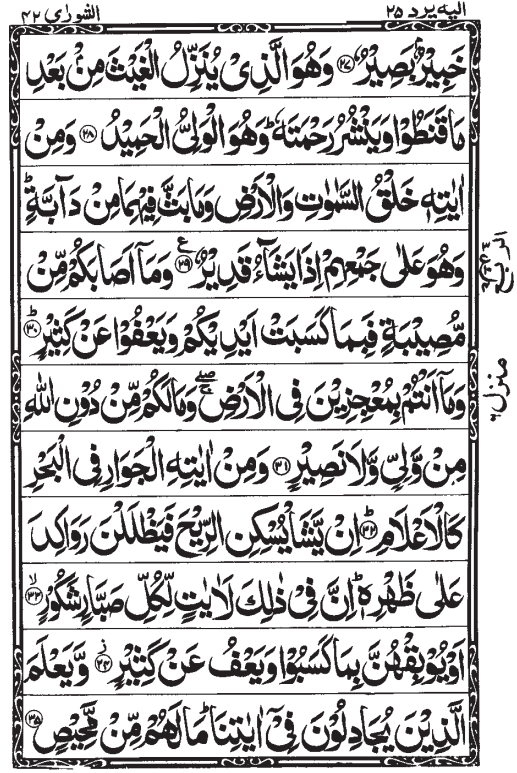 اليه يرد ٢٥
الشورٰى ٤٢
خَبِيْرٌۢ بَصِيْرٌ ﴿٢٧﴾ وَهُوَ الَّذِىْ يُنَزِّلُ الْغَيْثَ مِنْۢ بَعْدِ
مَا قَنَطُوْا وَيَنْشُرُ رَحْمَتَهٗ ؕ وَهُوَ الْوَلِىُّ الْحَمِيْدُ ﴿٢٨﴾ وَمِنْ
اٰيٰتِهٖ خَلْقُ السَّمٰوٰتِ وَالْاَرْضِ وَمَا بَثَّ فِيْهِمَا مِنْ دَآبَّةٍ ؕ
وَهُوَ عَلٰى جَمْعِهِمْ اِذَا يَشَآءُ قَدِيْرٌ ﴿٢٩﴾ وَمَاۤ اَصَابَكُمْ مِّنْ
مُّصِيْبَةٍ فَبِمَا كَسَبَتْ اَيْدِيْكُمْ وَيَعْفُوْا عَنْ كَثِيْرٍ ؕ ﴿٣٠﴾
وَمَاۤ اَنْتُمْ بِمُعْجِزِيْنَ فِى الْاَرْضِ ۖۚ وَمَا لَكُمْ مِّنْ دُوْنِ اللّٰهِ
مِنْ وَّلِىٍّ وَّلَا نَصِيْرٍ ﴿٣١﴾ وَمِنْ اٰيٰتِهِ الْجَوَارِ فِى الْبَحْرِ
كَالْاَعْلَامِ ؕ ﴿٣٢﴾ اِنْ يَّشَاْ يُسْكِنِ الرِّيْحَ فَيَظْلَلْنَ رَوَاكِدَ
عَلٰى ظَهْرِهٖ ؕ اِنَّ فِىْ ذٰلِكَ لَاٰيٰتٍ لِّكُلِّ صَبَّارٍ شَكُوْرٍ ۙ ﴿٣٣﴾
اَوْ يُوْبِقْهُنَّ بِمَا كَسَبُوْا وَيَعْفُ عَنْ كَثِيْرٍ ﴿٣٤﴾ وَّيَعْلَمَ
الَّذِيْنَ يُجَادِلُوْنَ فِىْۤ اٰيٰتِنَا ؕ مَا لَهُمْ مِّنْ مَّحِيْصٍ ﴿٣٥﴾
منزل ٦